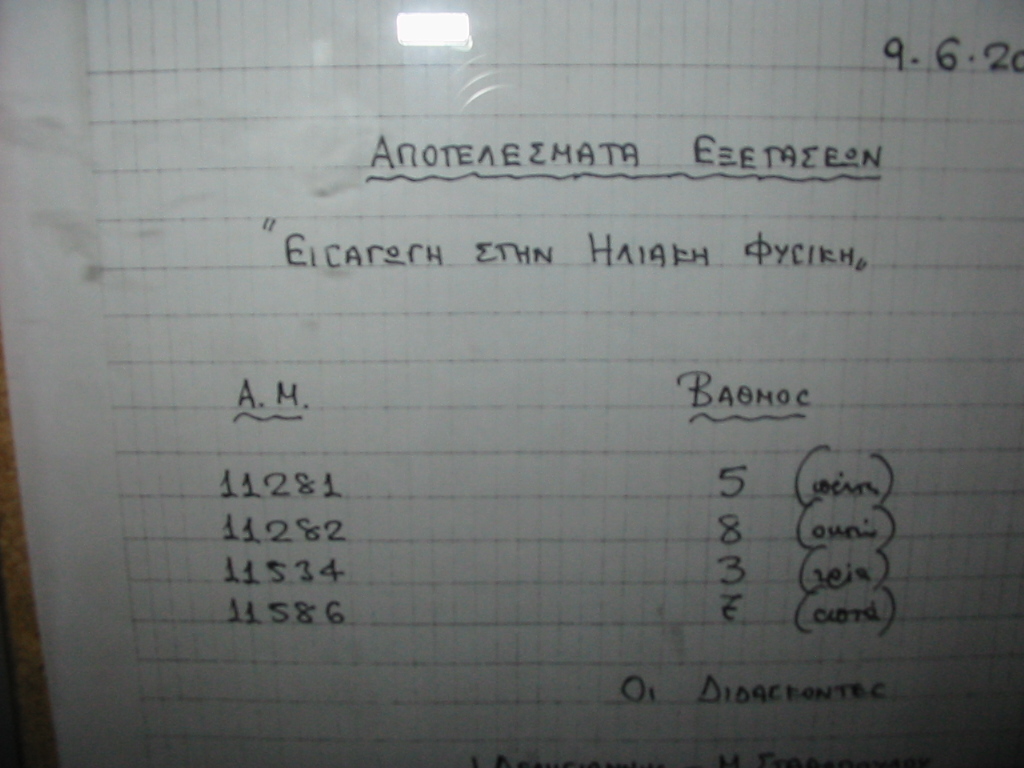 9.6.20
ΑΠΟΤΕΛΕΣΜΑΤΑ ΕΞΕΤΑΣΕΩΝ
"ΕΙCΑΓΩΓΗ ΣΤΗΝ ΗΛΙΑΚΗ ΦΥCΙΚΗ„
Α.Μ. ΒΑΘΜΟC
11281 5 (πέντε)
11282 8 (οκτώ)
11534 3 (τρία)
11586 7 (επτά)
ΟΙ ΔΙΔΑΣΚΟΝΤΕC